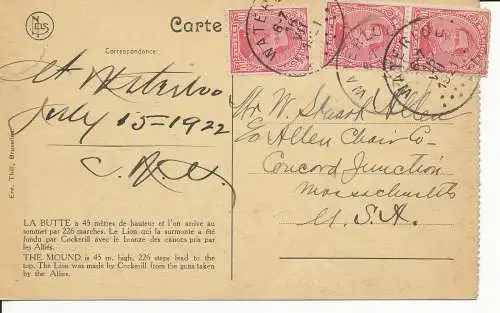 Carte
Correspondance
At Waterloo
July 15-1922
Mr W. Stuart Allen
c/o Allen Chair Co-
Concord Junction
Massachusetts
U.S.A.
LA BUTTE a 45 mètres de hauteur et l'on arrive au
sommet par 226 marches. Le Lion qui la surmonte a été
fondu par Cockerill avec le bronze des canons pris par
les Alliés.
THE MOUND is 45 m. high, 226 steps lead to the
top. The Lion was made by Cockerill from the guns taken
by the Allies.
Ern. Thill, Bruxelles
NELS
WATERLOO